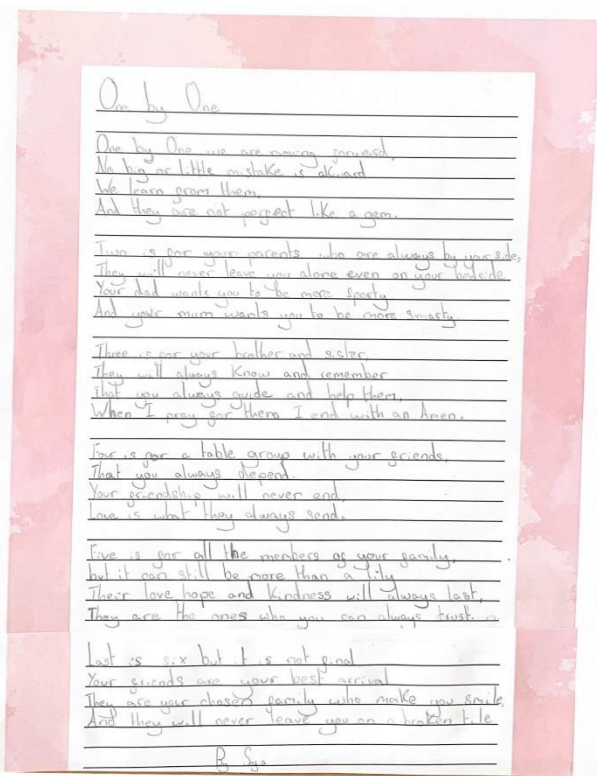 One by One
One by One we are moving forward,
No big or little mistake is akward
We learn from them,
And they are not perfect like a gem.
Two is for your parents who are always by your side,
They will never leave you alone even on your bedside
Your dad wants you to be more sporty
And your mum wants you to be more smarty
Three is for your brother and sister,
They will always know and remember
That you always guide and help them,
When I pray for them I end with an Amen.
Four is for a table group with your friends,
That you always depend.
Your friendship will never end,
Love is what they always send.
Five is for all the members of your family,
but it can still be more than a lily
Their love hope and kindness will always last,
They are the ones who you can always trust.
Last is six but it is not final
Your friends are your best arrival
They are your chosen family who make you smile,
And they will never leave you on a broken tile
By